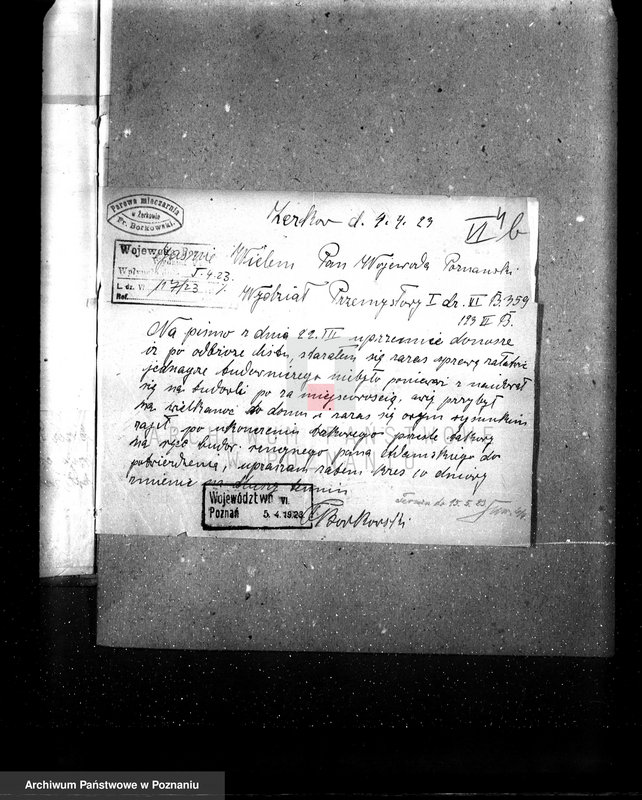 Parowa mleczarnia
w Żerkowie
Fr. Borkowski.
Żerkow d. 4.4.23
VI 4b
Wojewó
Wpłyn 5.4.23.
L. dz. VI
Ref.
Wielem Pan Wojewoda Poznanski
Wydział Przemysłowy I dz. VI B. 359
193 VI B.
Na pismo z dnia 22. III uprzemie donosze
iz po odbiorze listu, starałem się zaras sprawą załatwic
jednagze budowniczego niebyło poniewaz z
się na budowli po za miejscowoscią, a przybył
na wielkanoc do domu i zaras się orgm rysunkiem
zajeł, po ukonczeniu takowego przesle takowy
na ręce budow. pana do
potwierdzenia, upraszam zatem kres 10 dniowy
Województwo VI.
Poznań 5. 4. 1923
Borkowski
Termin do 15. 5. 23
Archiwum Państwowe w Poznaniu